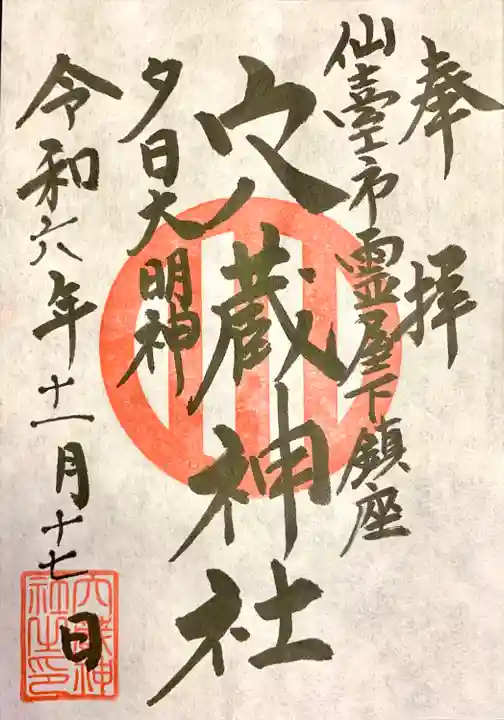 奉拝
仙臺市霊屋下鎮座
穴蔵神社
夕日大明神
令和六年十一月十七日
穴蔵神社之印